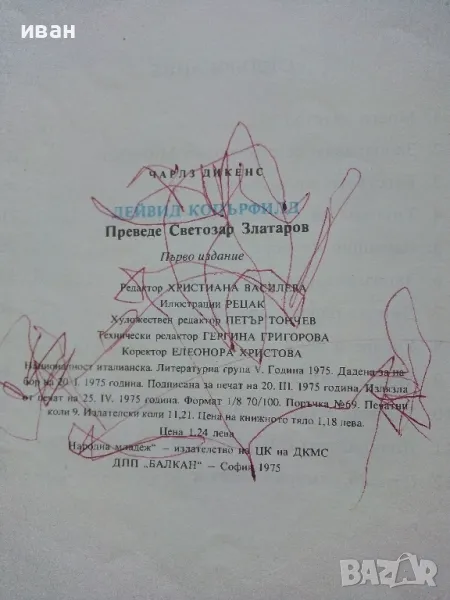 иван
ЧАРЛЗ ДИКЕНС
ДЕЙВИД КОПЪРФИЛД
Преведе Светозар Златаров
Първо издание
Редактор ХРИСТИАНА ВАСИЛЕВА
Илюстрации РЕЦАК
Художествен редактор ПЕТЪР ТОНЧЕВ
Технически редактор ГЕРГИНА ГРИГОРОВА
Коректор ЕЛЕОНОРА ХРИСТОВА
Националност италианска. Литературна група V. Година 1975. Дадена за на
бор на 20. I. 1975 година. Подписана за печат на 20. III. 1975 година. Излязла
от печат на 25. IV. 1975 година. Формат 1/8 70/100. Поръчка №69. Печатни
коли 9. Издателски коли 11,21. Цена на книжното тяло 1,18 лева.
Цена 1,24 лева
„Народна младеж“ – издателство на ЦК на ДКМС
ДПП „БАЛКАН“ – София 1975
BAZAR
bg